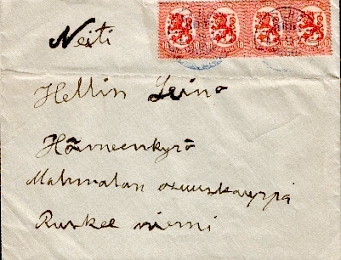 Neiti
Hellin Leino
Hämeenkyrö
Mahnalan osuuskauppa
Ruskee niemi